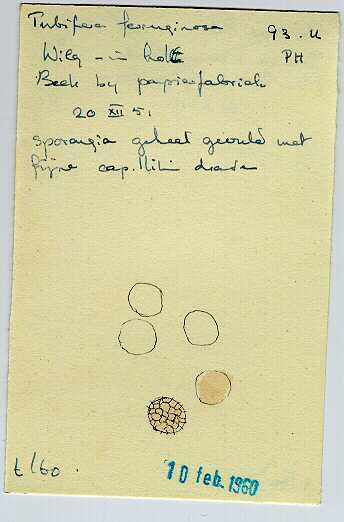 Tubifera ferruginosa 93. U
Wilg - in holte PH
Beek by papierfabriek
20 XII 51
sporangia geheel gevuld met
fijne capillitiumdraden
t/60.
10 feb. 1960